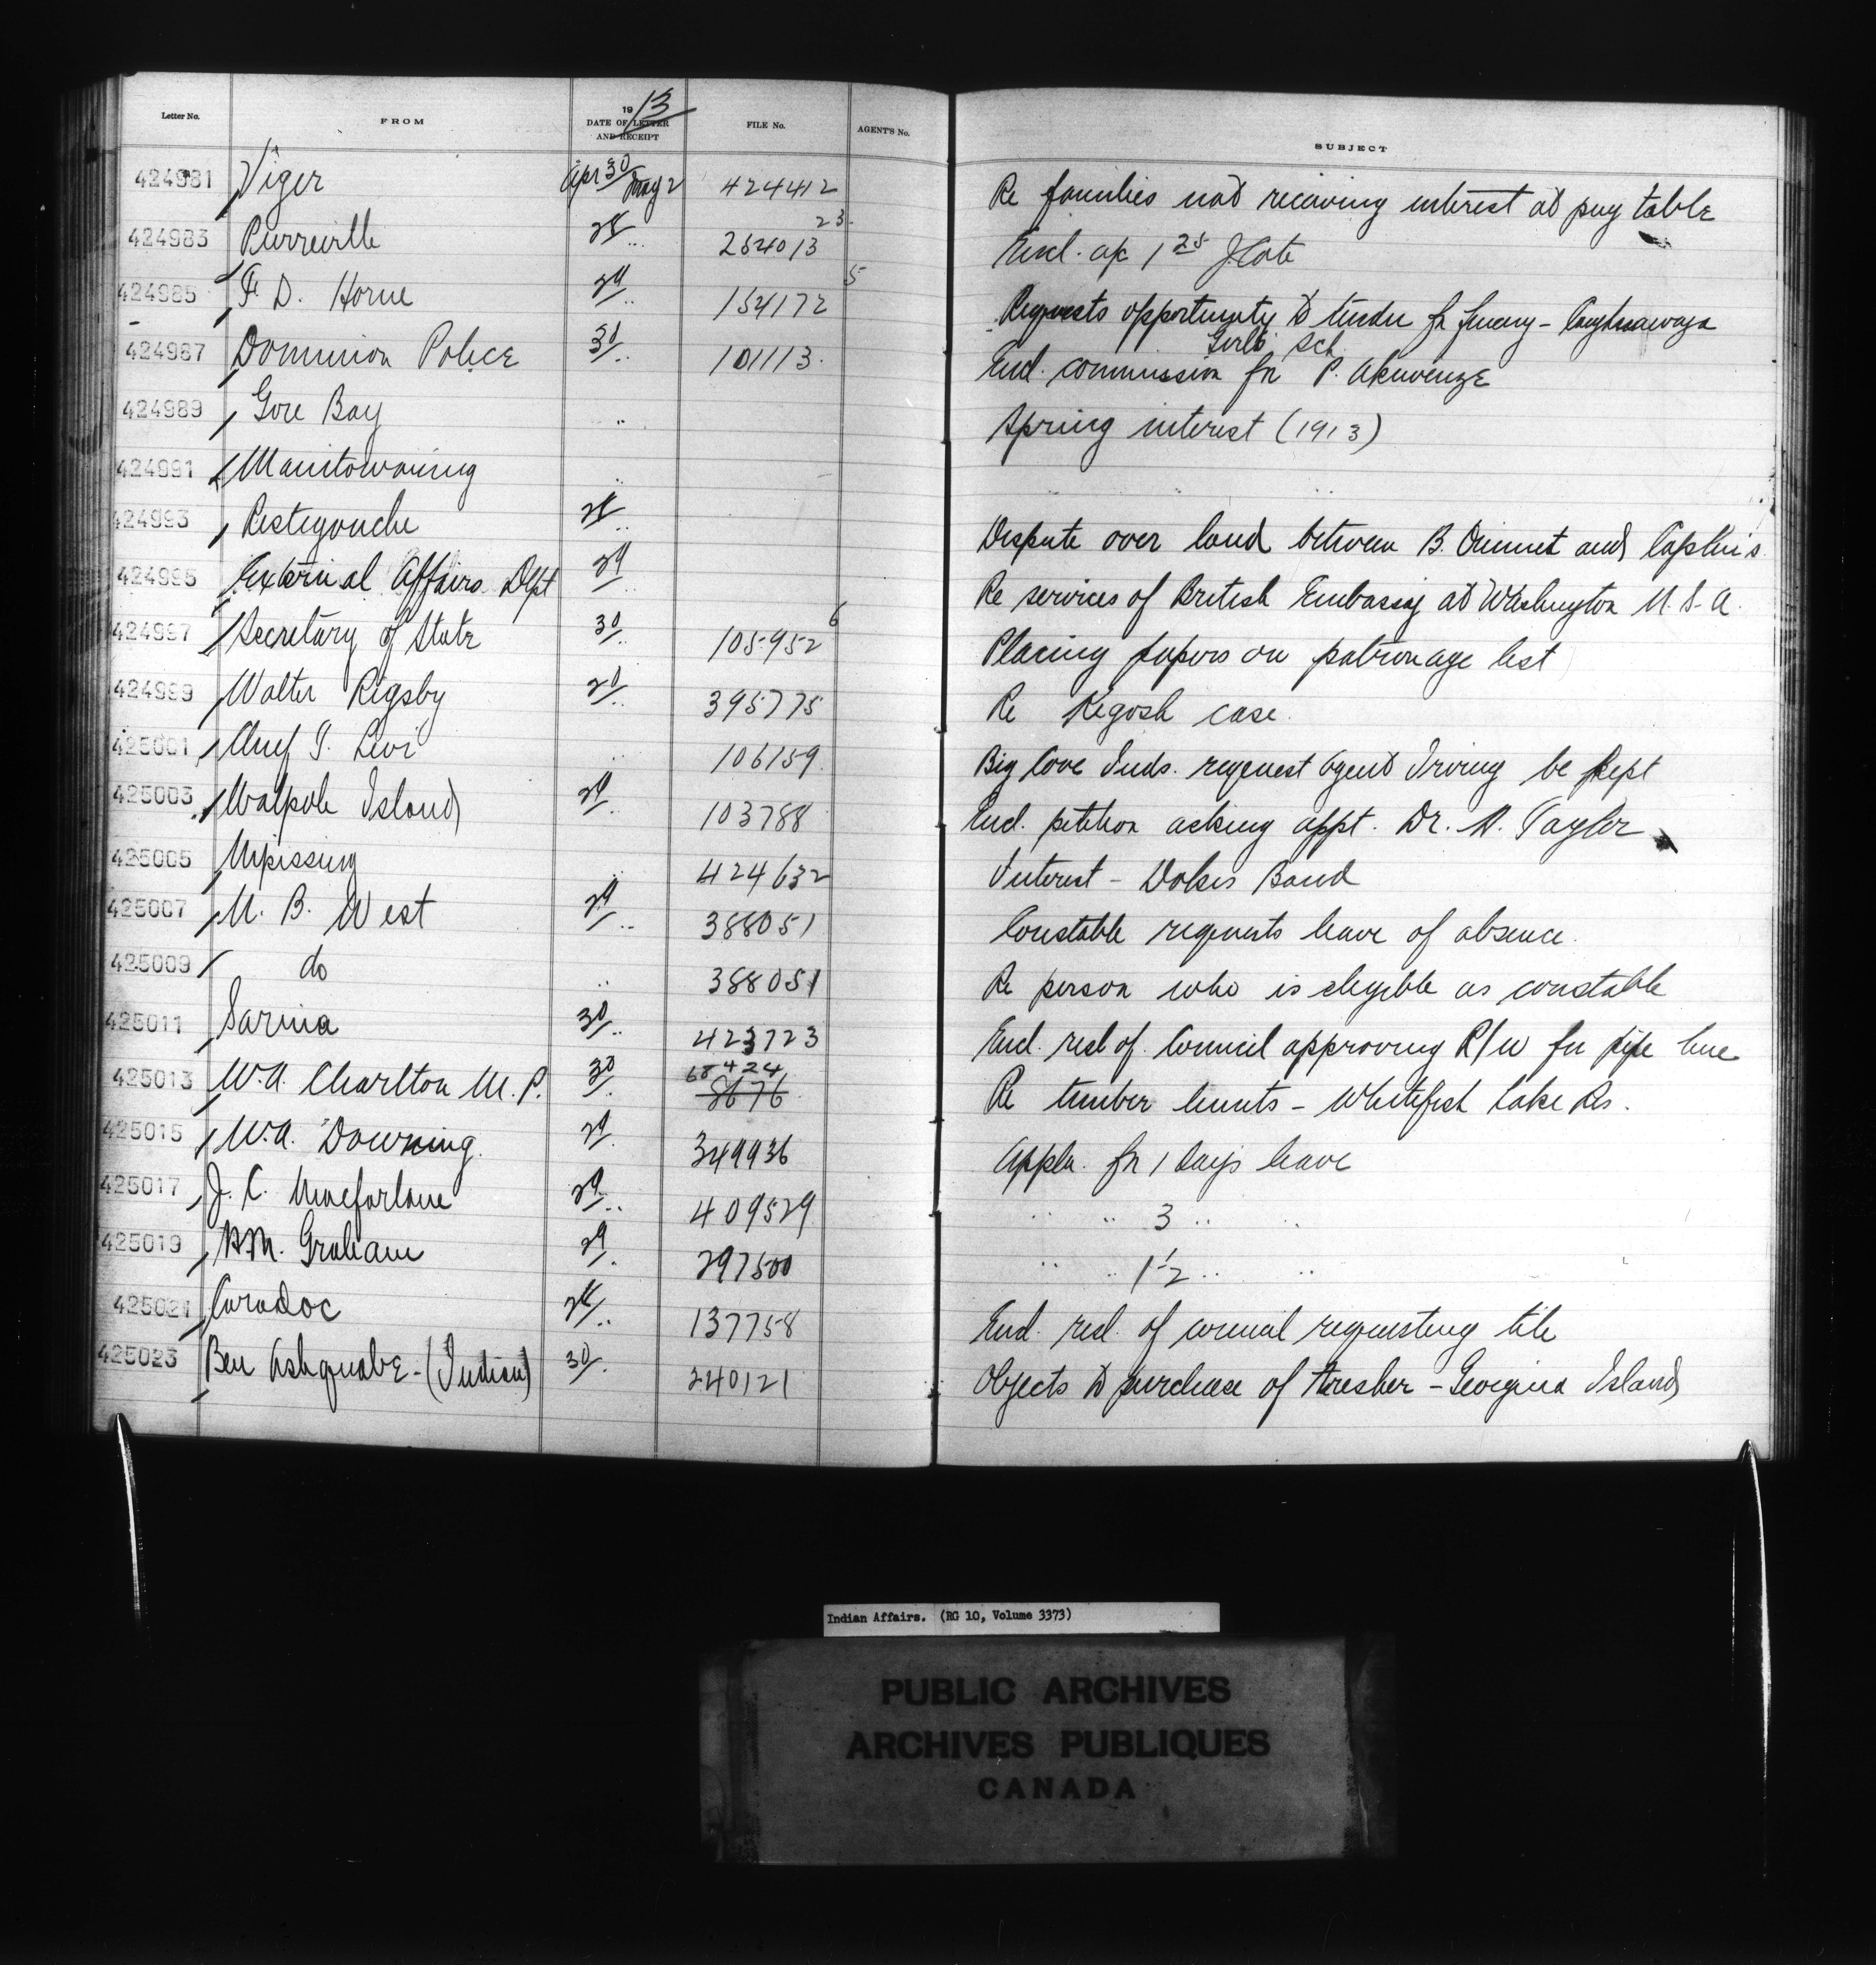 Letter No. FROM 1913 DATE OF LETTER AND RECEIPT FILE No. AGENT'S No. SUBJECT
424981 Viger Apr 30 May 2 424412 Re families not receiving interest at pay table
424983 Pierreville 28 .. 254013 23 Encl. a/c 1 25 J Cote
424985 F. D. Horne 29 .. 154172 5 Requests opportunity to tender for fencing - Caughnawaga
Girls Sch.
424987 Dominion Police 30 .. 101113 Encl. commission for P.
424989 Gore Bay .. Spring interest (1913)
424991 Manitowaning .. .. ..
424993 Restigouche 28 .. Dispute over land between B. Ouimet and Caplin's
424995 External Affairs Dept 29 .. Re services of British Embassy at Washington U.S.A.
424997 Secretary of State 30 .. 105952 6 Placing papers on patronage list
424999 Walter Rigsby 20 .. 395775 Re Kegosh case.
425001 Chief T. Levi .. 106159 Big Cove Inds. request Agent Irving be kept
425003 Walpole Island 29 .. 103788 Encl. petition asking appt. Dr. A. Taylor
425005 Nipissing .. 424632 Interest - Dokis Band
425007 N. B. West 29 .. 388051 Constable requests leave of absence.
425009 do .. 388051 Re person who is elegible as constable
425011 Sarnia 30 .. 423723 Encl. resl of Council approving R/W for pipe line
425013 W.A. Charlton M.P. 30 . 68424 8676 Re timber limits - Whitefish Lake Rs.
425015 W.A. Downing. 29 . 349936 Appln. for 1 days leave
425017 J. C. Macfarlane 29 .. 409529 .. .. 3 .. ..
425019 Graham 29 . 297500 .. .. 1½ .. ..
425021 Caradoc 28 .. 137758 Encl. resl. of council requesting tile
425023 Ben Ashquabe - (Indian) 30 . 240121 Objects to purchase of thresher - Georgina Island
Indian Affairs. (RG 10, Volume 3373)
PUBLIC ARCHIVES
ARCHIVES PUBLIQUES
CANADA